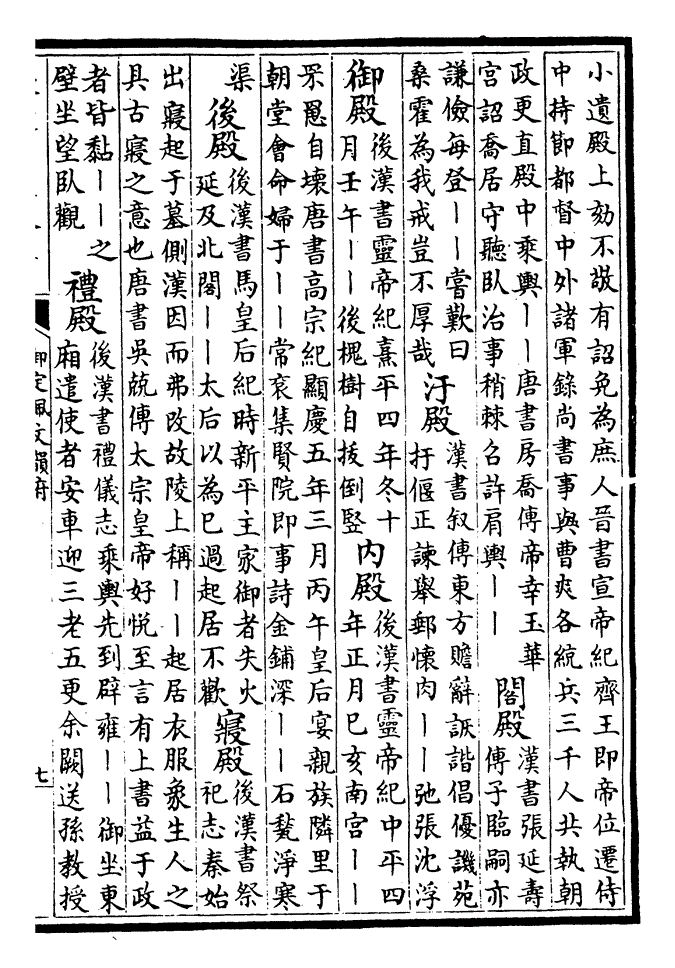 小遺殿上劾不敬有詔免為庶人晉書宣帝紀齊王即帝位遷侍
中持節都督中外諸軍錄尚書事與曹爽各統兵三千人共執朝
政更直殿中乘輿丨丨唐書房喬傳帝幸玉華
宮詔喬居守聽臥治事稍棘召許肩輿丨丨
閣殿
漢書張延壽
傳子臨嗣亦
謙儉每登丨丨嘗歎曰
桑霍為我戒豈不厚哉
汙殿
漢書叙傳東方贍辭詼諧倡優譏苑
扞偃正諫舉郵懷肉丨丨弛張沈浮
御殿
後漢書靈帝紀熹平四年冬十
月壬午丨丨後槐樹自拔倒豎
内殿
後漢書靈帝紀中平四
年正月巳亥南宮丨丨
罘罳自壞唐書高宗紀顯慶五年三月丙午皇后宴親族隣里于
朝堂會命婦于丨丨常衮集賢院即事詩金鋪深丨丨石甃淨寒
渠
後殿
後漢書馬皇后紀時新平主家御者失火
延及北閣丨丨太后以為巳過起居不歡
寢殿
後漢書祭
祀志秦始
出寢起于墓側漢因而弗改故陵上稱丨丨起居衣服象生人之
具古寢之意也唐書吳兢傳太宗皇帝好悅至言有上書益于政
者皆黏丨丨之
壁坐望臥觀
禮殿
後漢書禮儀志乘輿先到辟雍丨丨御坐東
廂遣使者安車迎三老五更余闕送孫教授
御定佩文韻府
七